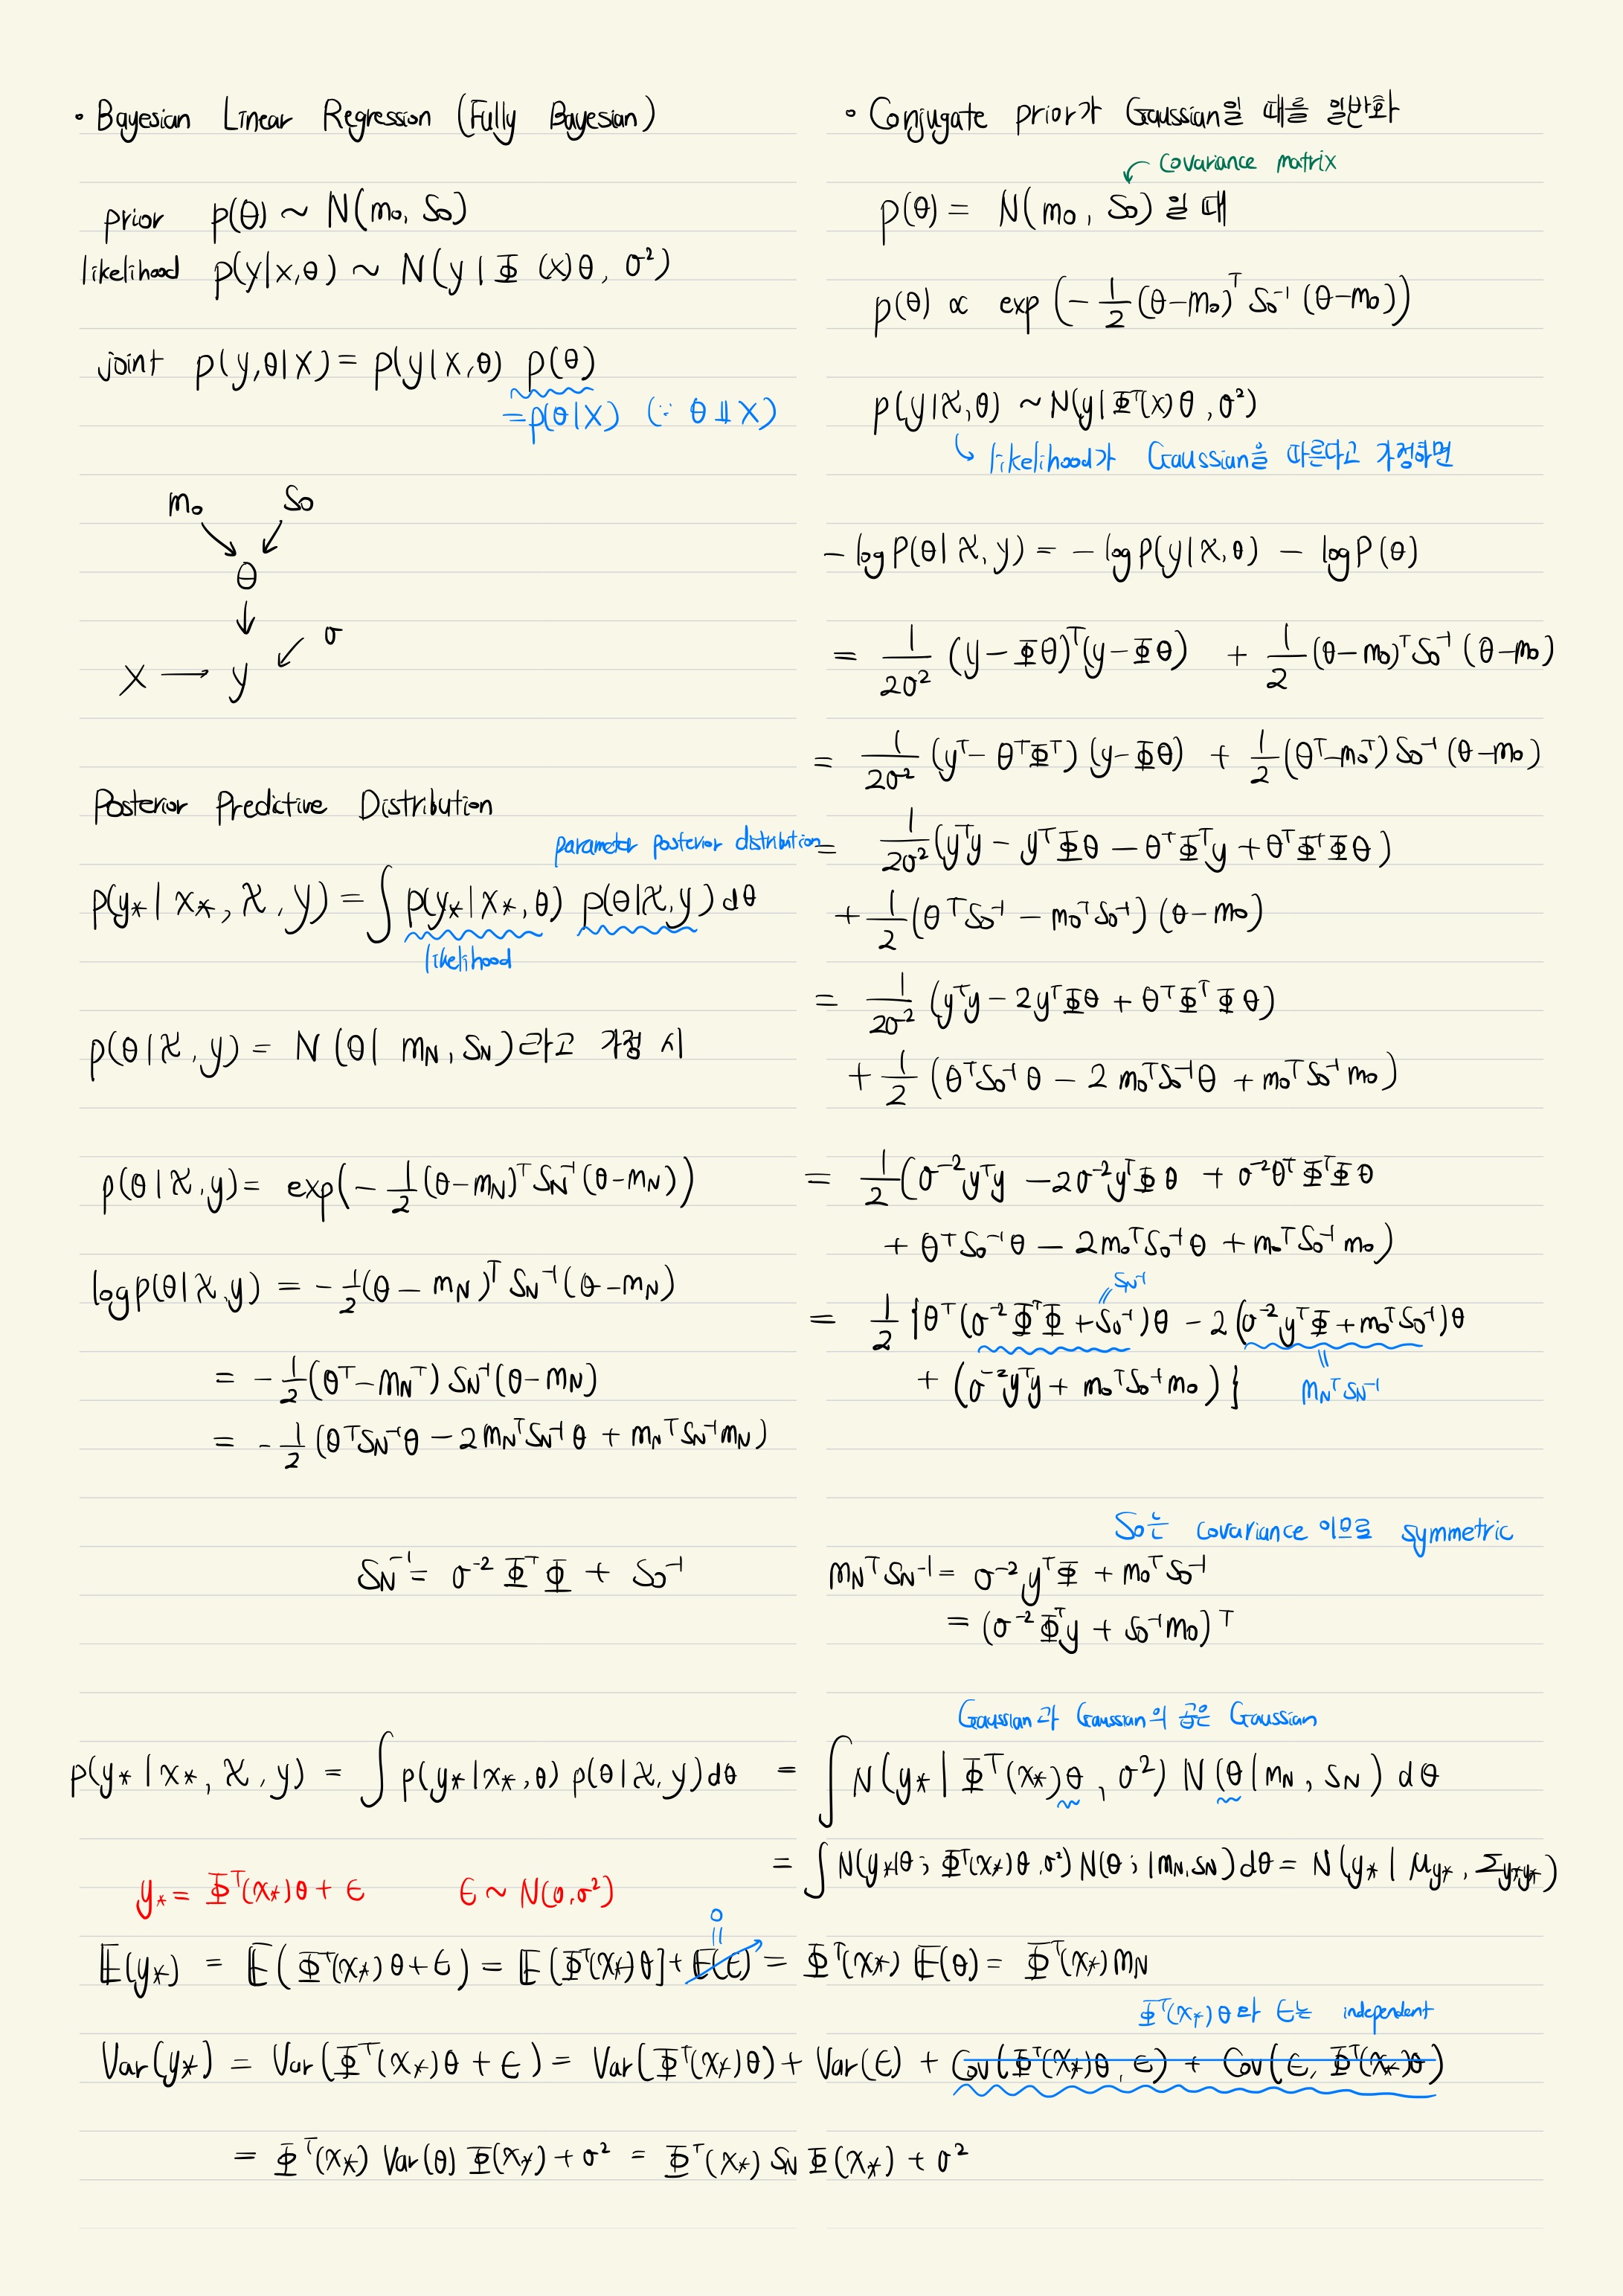 • Bayesian Linear Regression (Fully Bayesian)
prior p(θ) ~ N(m₀, S₀)
likelihood p(y|x,θ) ~ N(y | Φ (x)θ, σ²)
joint p(y,θ|X) = p(y|X,θ) p(θ)
= p(θ|X) (∵ θ ⫫ X)
m₀ S₀
θ
σ
X → y
Posterior Predictive Distribution
parameter posterior distribution
p(y* | x*, X, y) = ∫ p(y*|x*, θ) p(θ|X, y) dθ
likelihood
p(θ|X, y) = N(θ| m_N, S_N)라고 가정 시
p(θ|X, y) = exp(-1/2 (θ-m_N)ᵀ S_N⁻¹ (θ-m_N))
log p(θ|X, y) = -1/2 (θ - m_N)ᵀ S_N⁻¹ (θ-m_N)
= -1/2 (θᵀ - m_Nᵀ) S_N⁻¹ (θ-m_N)
= -1/2 (θᵀS_N⁻¹θ - 2m_NᵀS_N⁻¹θ + m_NᵀS_N⁻¹m_N)
S_N⁻¹ = σ⁻² ΦᵀΦ + S₀⁻¹
• Conjugate prior가 Gaussian일 때를 일반화
covariance matrix
p(θ) = N(m₀, S₀) 일 때
p(θ) ∝ exp (-1/2 (θ-m₀)ᵀ S₀⁻¹ (θ-m₀))
p(y|X,θ) ~ N(y|Φᵀ(x)θ, σ²)
likelihood가 Gaussian을 따른다고 가정하면
-log P(θ|X, y) = -log P(y|X, θ) - log P(θ)
= 1/2σ² (y - Φθ)ᵀ(y - Φθ) + 1/2 (θ-m₀)ᵀS₀⁻¹(θ-m₀)
= 1/2σ² (yᵀ - θᵀΦᵀ)(y - Φθ) + 1/2 (θᵀ-m₀ᵀ)S₀⁻¹(θ-m₀)
= 1/2σ² (yᵀy - yᵀΦθ - θᵀΦᵀy + θᵀΦᵀΦθ)
+ 1/2 (θᵀS₀⁻¹ - m₀ᵀS₀⁻¹)(θ-m₀)
= 1/2σ² (yᵀy - 2yᵀΦθ + θᵀΦᵀΦθ)
+ 1/2 (θᵀS₀⁻¹θ - 2m₀ᵀS₀⁻¹θ + m₀ᵀS₀⁻¹m₀)
= 1/2 (σ⁻²yᵀy - 2σ⁻²yᵀΦθ + σ⁻²θᵀΦᵀΦθ
+ θᵀS₀⁻¹θ - 2m₀ᵀS₀⁻¹θ + m₀ᵀS₀⁻¹m₀)
= S_N⁻¹
= 1/2 {θᵀ(σ⁻²ΦᵀΦ + S₀⁻¹)θ - 2(σ⁻²yᵀΦ + m₀ᵀS₀⁻¹)θ
+ (σ⁻²yᵀy + m₀ᵀS₀⁻¹m₀)}
= m_NᵀS_N⁻¹
S₀는 covariance 이므로 symmetric
m_NᵀS_N⁻¹ = σ⁻²yᵀΦ + m₀ᵀS₀⁻¹
= (σ⁻²Φᵀy + S₀⁻¹m₀)ᵀ
Gaussian과 Gaussian의 곱은 Gaussian
p(y* | x*, X, y) = ∫ p(y*|x*, θ) p(θ|X, y) dθ = ∫ N(y* | Φᵀ(x*)θ, σ²) N(θ|m_N, S_N) dθ
= ∫ N(y*|θ; Φᵀ(x*)θ, σ²) N(θ; |m_N, S_N) dθ = N(y* | μ_y*, Σ_y*y*)
y* = Φᵀ(x*)θ + ϵ ϵ ~ N(0, σ²)
0
=
E(y*) = E(Φᵀ(x*)θ + ϵ) = E[Φᵀ(x*)θ] + E(ϵ) = Φᵀ(x*) E(θ) = Φᵀ(x*) m_N
Φᵀ(x*)θ와 ϵ는 independent
Var(y*) = Var(Φᵀ(x*)θ + ϵ) = Var(Φᵀ(x*)θ) + Var(ϵ) + Cov(Φᵀ(x*)θ, ϵ) + Cov(ϵ, Φᵀ(x*)θ)
= Φᵀ(x*) Var(θ) Φ(x*) + σ² = Φᵀ(x*) S_N Φ(x*) + σ²